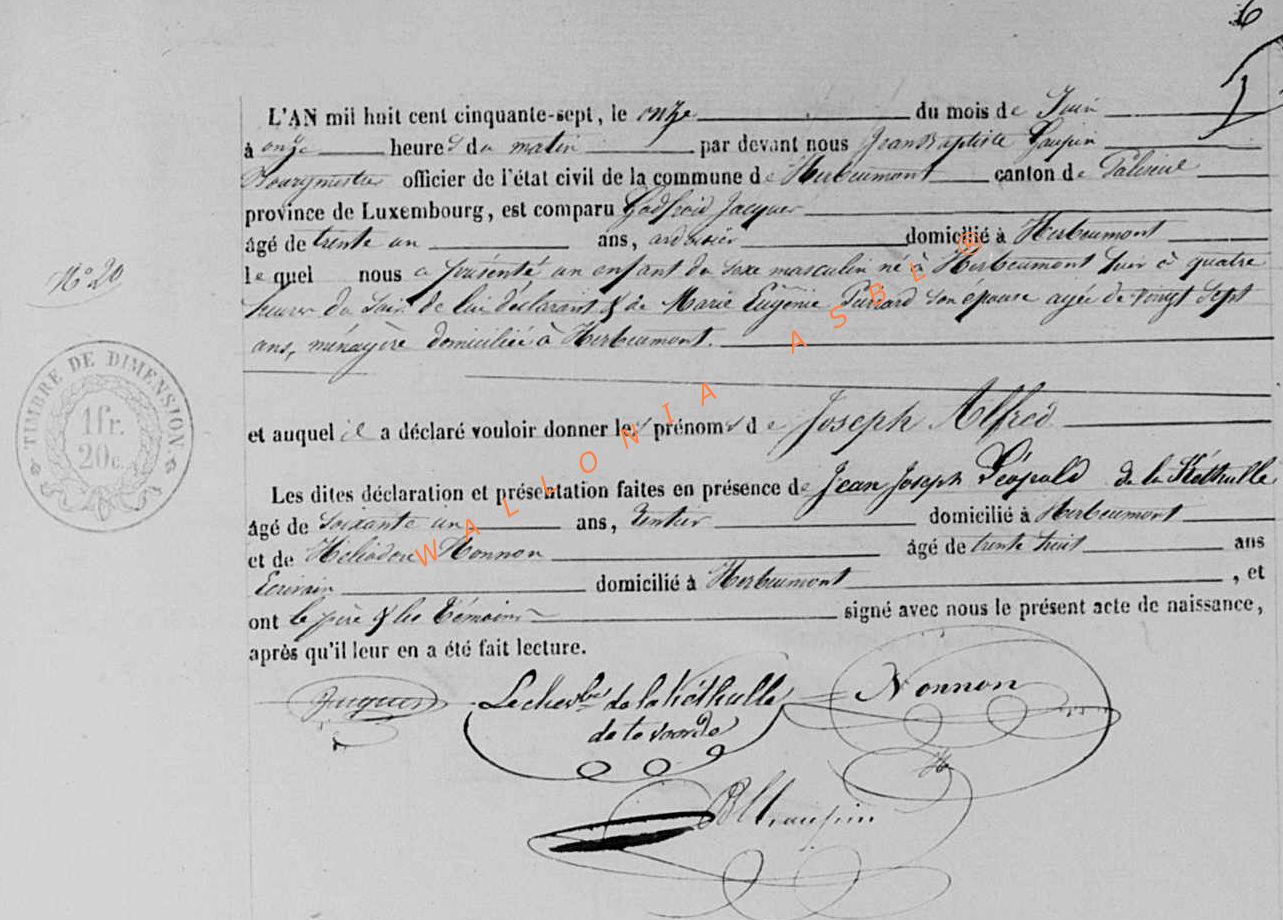 6
L'AN mil huit cent cinquante-sept, le onze du mois de Juin
à onze heures du matin par devant nous Jean Baptiste
Bourgmestre officier de l'état civil de la commune de Herbeumont canton de Paliseul
province de Luxembourg, est comparu Godfroid Jacques
âgé de trente un ans, ardoisier domicilié à Herbeumont
le quel nous a présenté un enfant du sexe masculin né à Herbeumont hier à quatre
heures du soir de lui déclarant & de Marie Eugénie son épouse agée de vingt sept
ans, ménagère domiciliée à Herbeumont.
N° 20
TIMBRE DE DIMENSION
1 fr.
20 c.
et auquel il a déclaré vouloir donner les prénoms de Joseph Alfred
Les dites déclaration et présentation faites en présence de Jean Joseph Léopold de la Kéthulle
âgé de soixante un ans, Rentier domicilié à Herbeumont
et de Héliodore Nonnon âgé de trente huit ans
Ecrivain domicilié à Herbeumont, et
ont le père & les témoins signé avec nous le présent acte de naissance,
après qu'il leur en a été fait lecture.
Jacques Le chev. de la Kéthulle Nonnon
de te voorde
WALLONIA ASBL ®